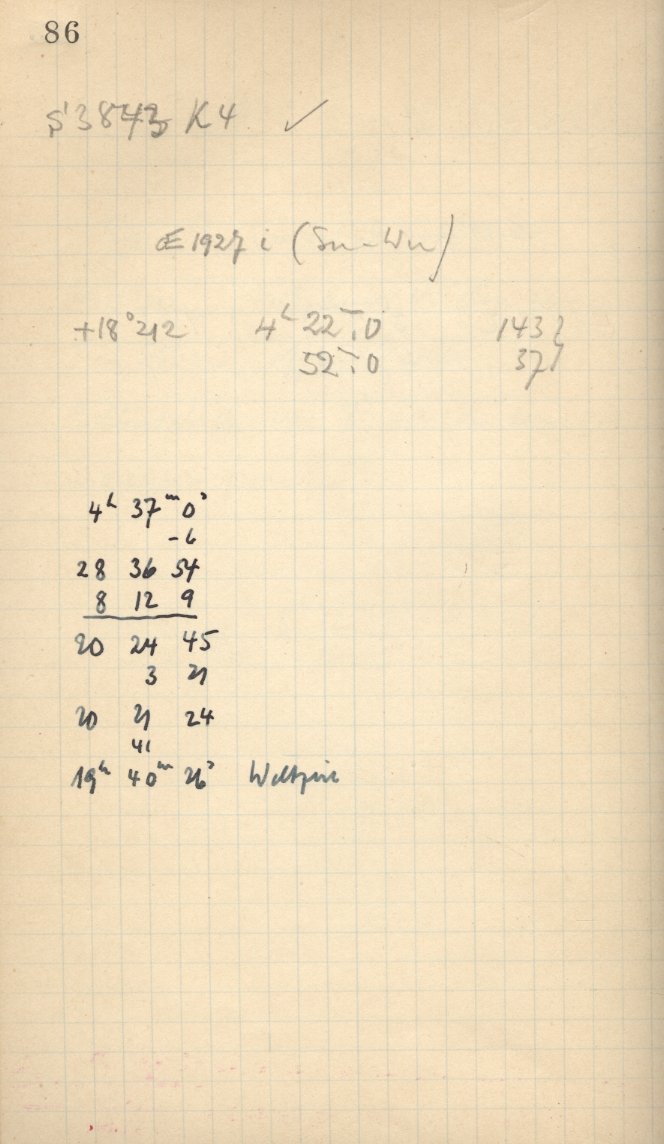 86
S 3843 K4 ✓
Œ 1927 i (Sn-Wn)
+18°212 4ʰ 22ᵐ.0 143
52ᵐ.0 37
4ʰ 37ᵐ 0ˢ
-6
28 36 54
8 12 9
20 24 45
3 21
20 21 24
41
19ʰ 40ᵐ 26ˢ Weltzeit